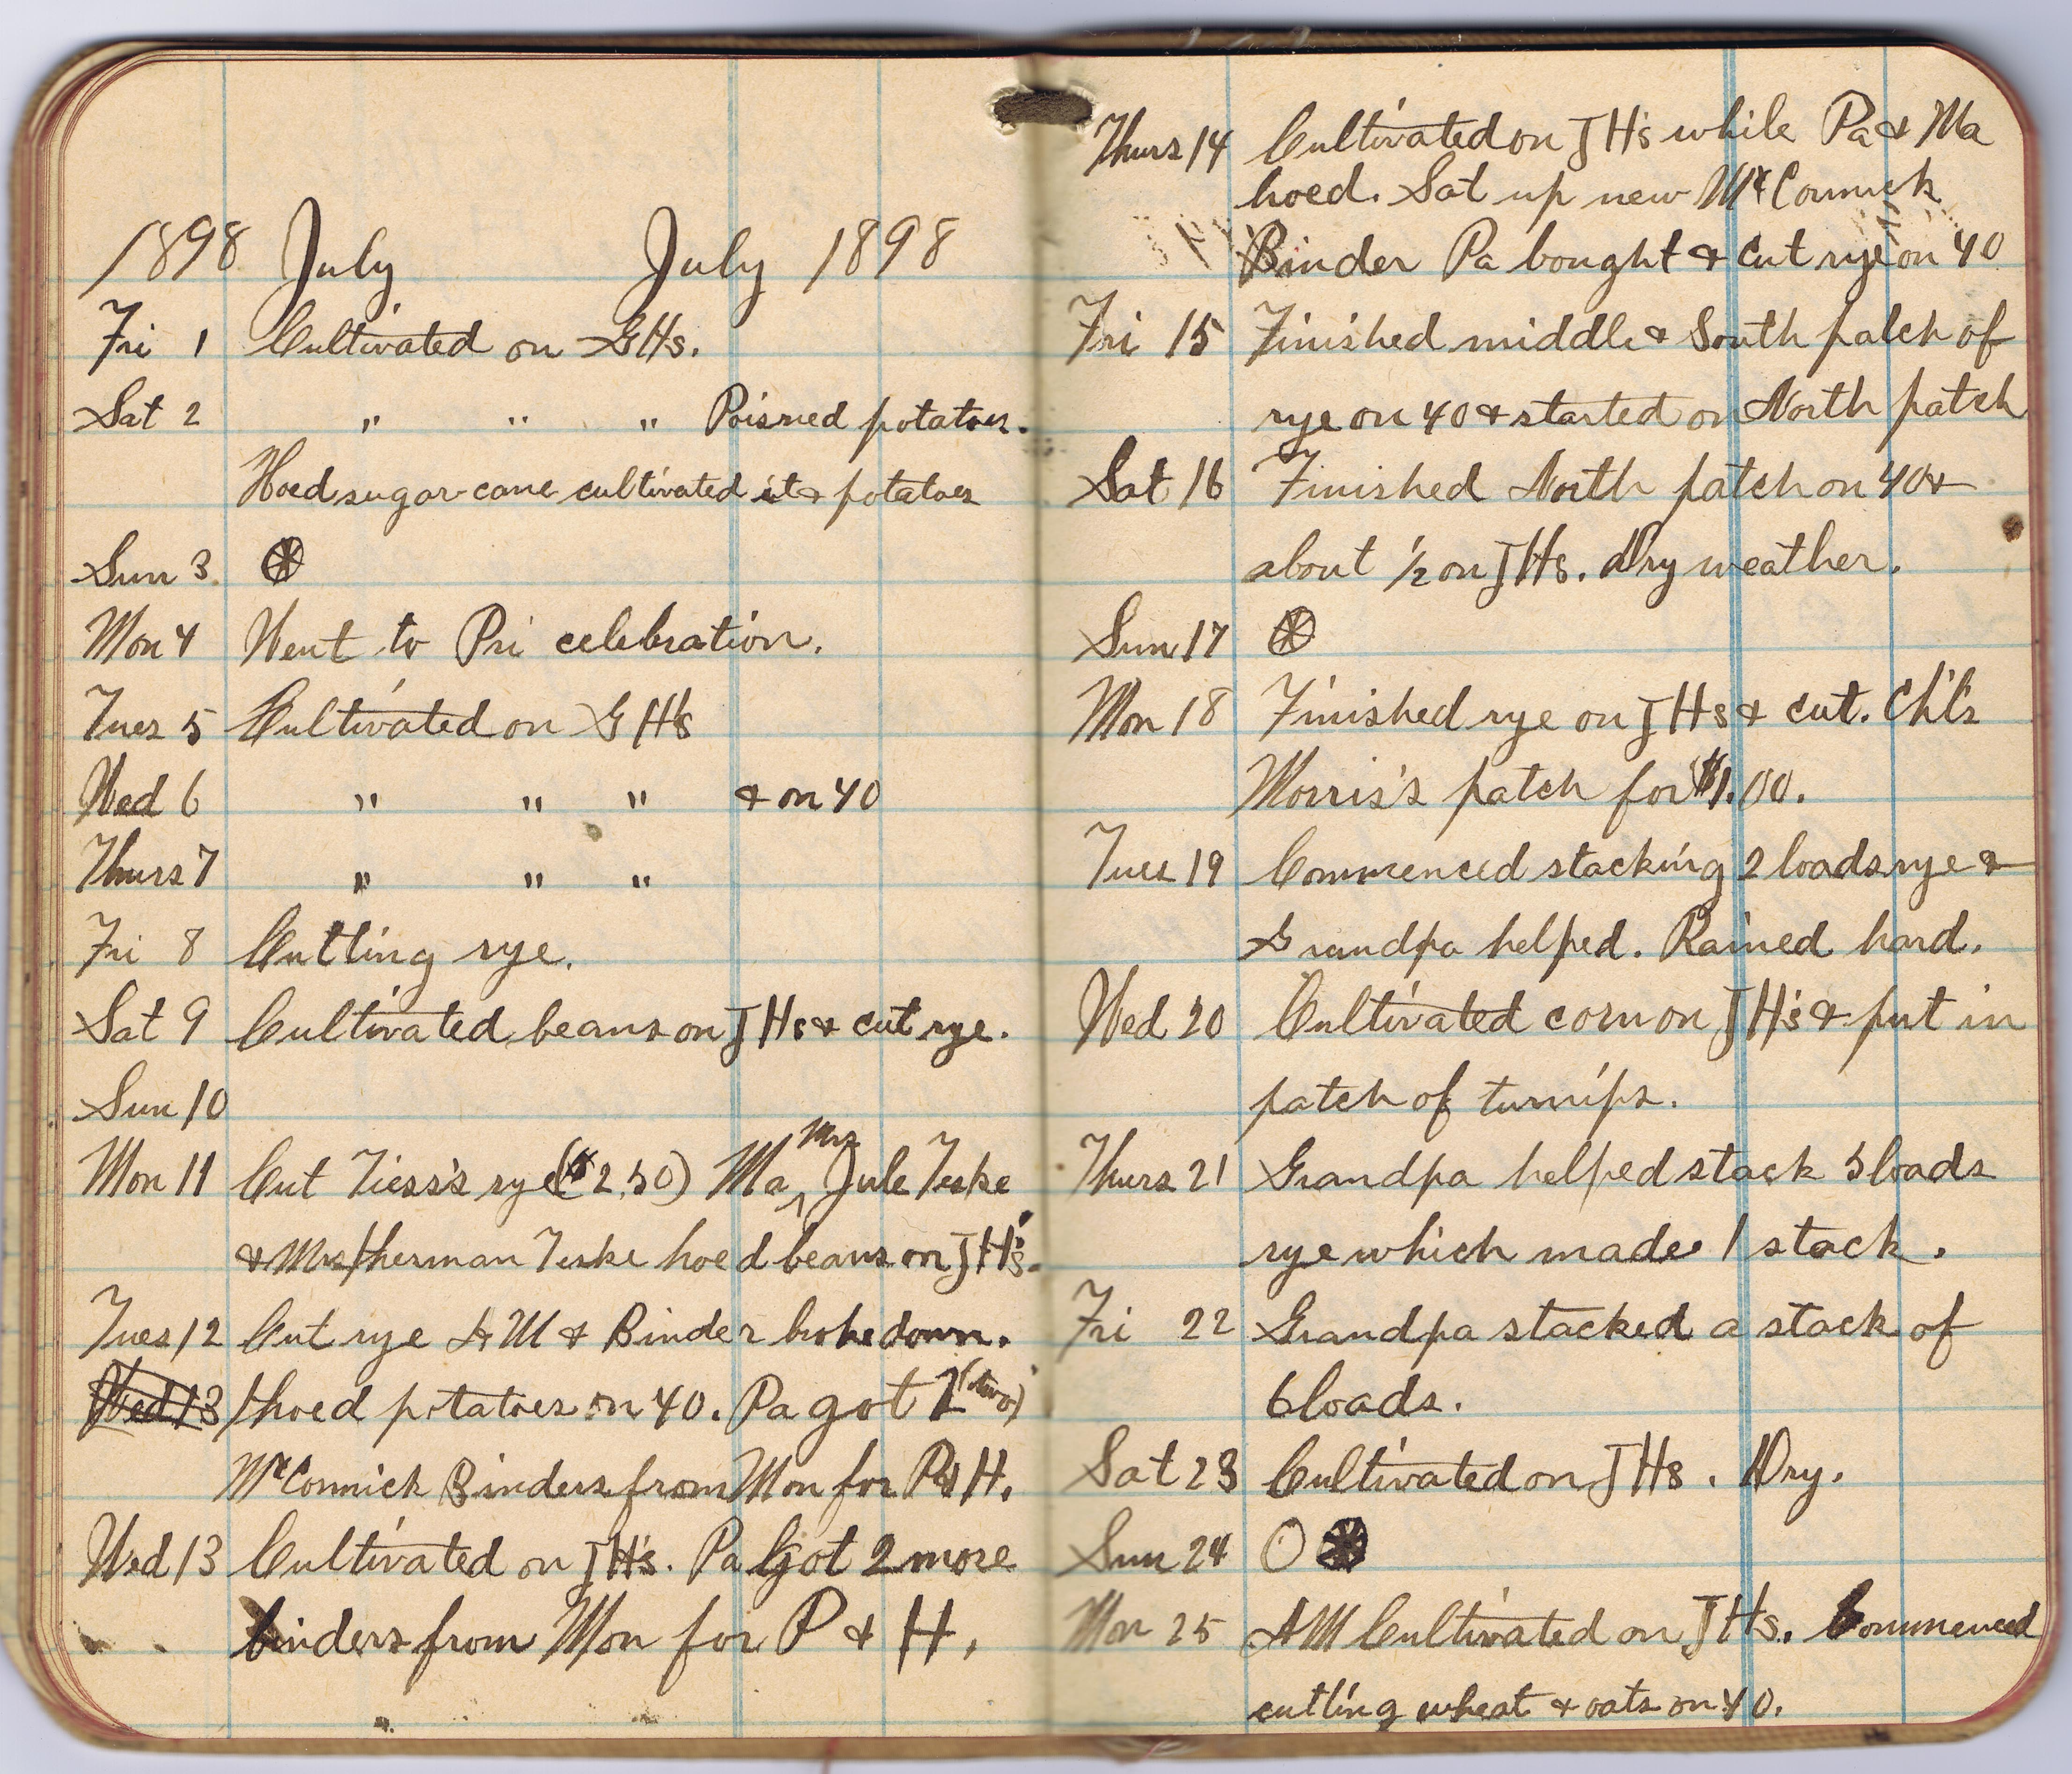 1898 July July 1898
Fri 1 Cultivated on GHs.
Sat 2 " " " Poisned potatoes.
Hoed sugar-cane cultivated it & potatoes
Sun 3
Mon 4 Went to Pri celebration.
Tues 5 Cultivated on GH's
Wed 6 " " " & on 40
Thurs 7 " " "
Fri 8 Cutting rye.
Sat 9 Cultivated beans on JHs & cut rye.
Sun 10
Mon 11 Cut Tiess's rye ($2.50) Ma Mrs Jule Teske
& Mrs Herman Teske hoed beans on JH's.
Tues 12 Cut rye A M & Binder broke down.
Wed 13 Hoed potatoes on 40. Pa got 2 (two)
McCormick Binders from Mon for P & H.
Wed 13 Cultivated on JH's. Pa got 2 more
binders from Mon for P & H.
Thurs 14 Cultivated on JH's while Pa & Ma
hoed. Sat up new McCormick
Binder Pa bought & cut rye on 40
Fri 15 Finished middle & South patch of
rye on 40 & started on North patch
Sat 16 Finished North patch on 40 &
about 1/2 on JHs. Dry weather.
Sun 17
Mon 18 Finished rye on JHs & cut. Ch's
Morris's patch for $1.00.
Tues 19 Commenced stacking 2 loads rye &
Grandpa helped. Rained hard.
Wed 20 Cultivated corn on JH's & put in
patch of turnips.
Thurs 21 Grandpa helped stack 5 loads
rye which made 1 stack.
Fri 22 Grandpa stacked a stack of
6 loads.
Sat 23 Cultivated on JHs. Dry.
Sun 24
Mon 25 AM Cultivated on JHs. Commenced
cutting wheat & oats on 40.